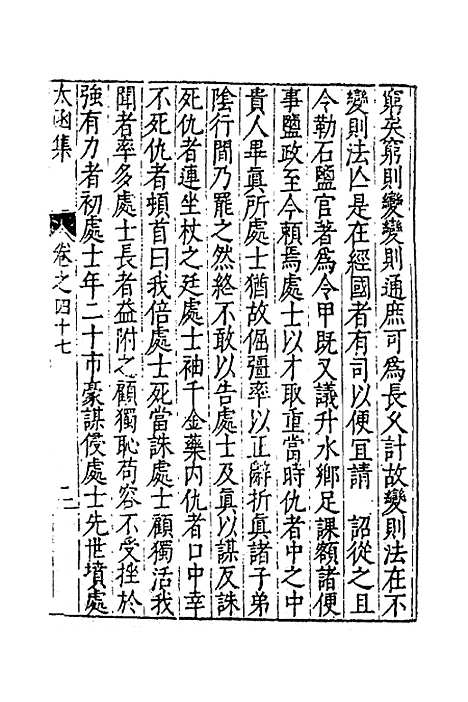 窮矣窮則變變則通庶可為長久計故變則法在不
變則法亾是在經國者有司以便冝請　詔從之且
今勒石鹽官著為令甲旣又議升水鄉足課額諸便
事鹽政至今頼焉處士以才取重當時仇者中之中
貴人畢眞所處士猶故倔彊率以正辭折眞諸子弟
隂行間乃罷之然終不敢以告處士及眞以謀反誅
死仇者連坐杖之廷處士袖千金藥内仇者口中幸
不死仇者頓首曰我倍處士死當誅處士顧獨活我
聞者率多處士長者益附之顧獨恥苟容不受挫於
強有力者初處士年二十市豪謀侵處士先世墳處
太函集
卷之四十七
二